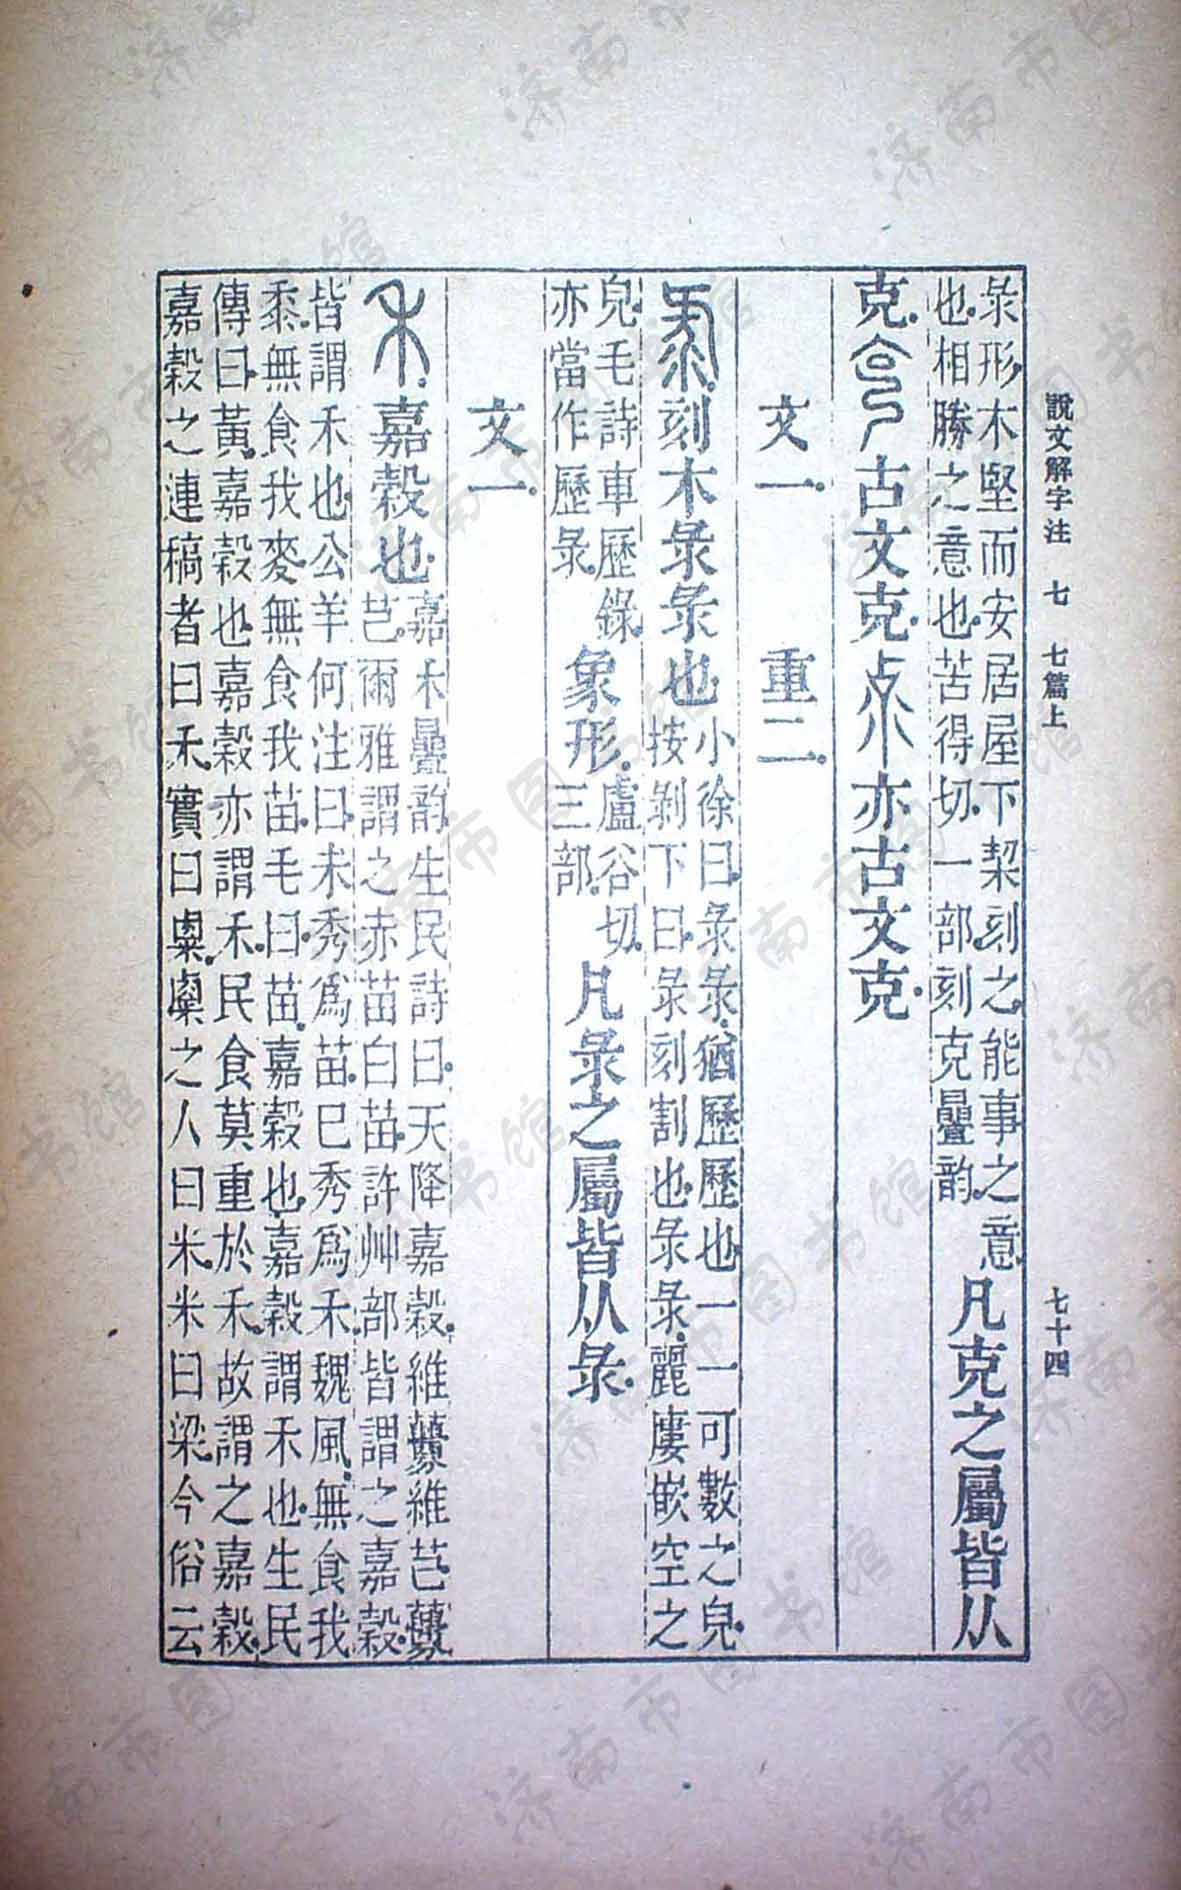 說文解字注 七 七篇上 七十四
彔形木堅而安居屋下契刻之能事之意
也相勝之意也苦得切一部刻克疊韵
凡克之屬皆从
克
古文克
亦古文克
文一 重二
刻木彔彔也
小徐曰彔彔猶歷歷也一一可數之皃
按剝下曰彔刻割也彔彔麗廔嵌空之
皃毛詩車歷錄
亦當作歷彔
象形
盧谷切
三部
凡彔之屬皆从彔
文一
嘉穀也
嘉禾疊韵生民詩曰天降嘉穀維虋維芑虋
芑爾雅謂之赤苗白苗許艸部皆謂之嘉穀
皆謂禾也公羊何注曰未秀爲苗已秀爲禾魏風無食我
黍無食我麥無食我苗毛曰苗嘉穀也嘉穀謂禾也生民
傳曰黃嘉穀也嘉穀亦謂禾民食莫重於禾故謂之嘉穀
嘉穀之連稿者曰禾實曰粟粟之人曰米米曰梁今俗云
济南市图书馆